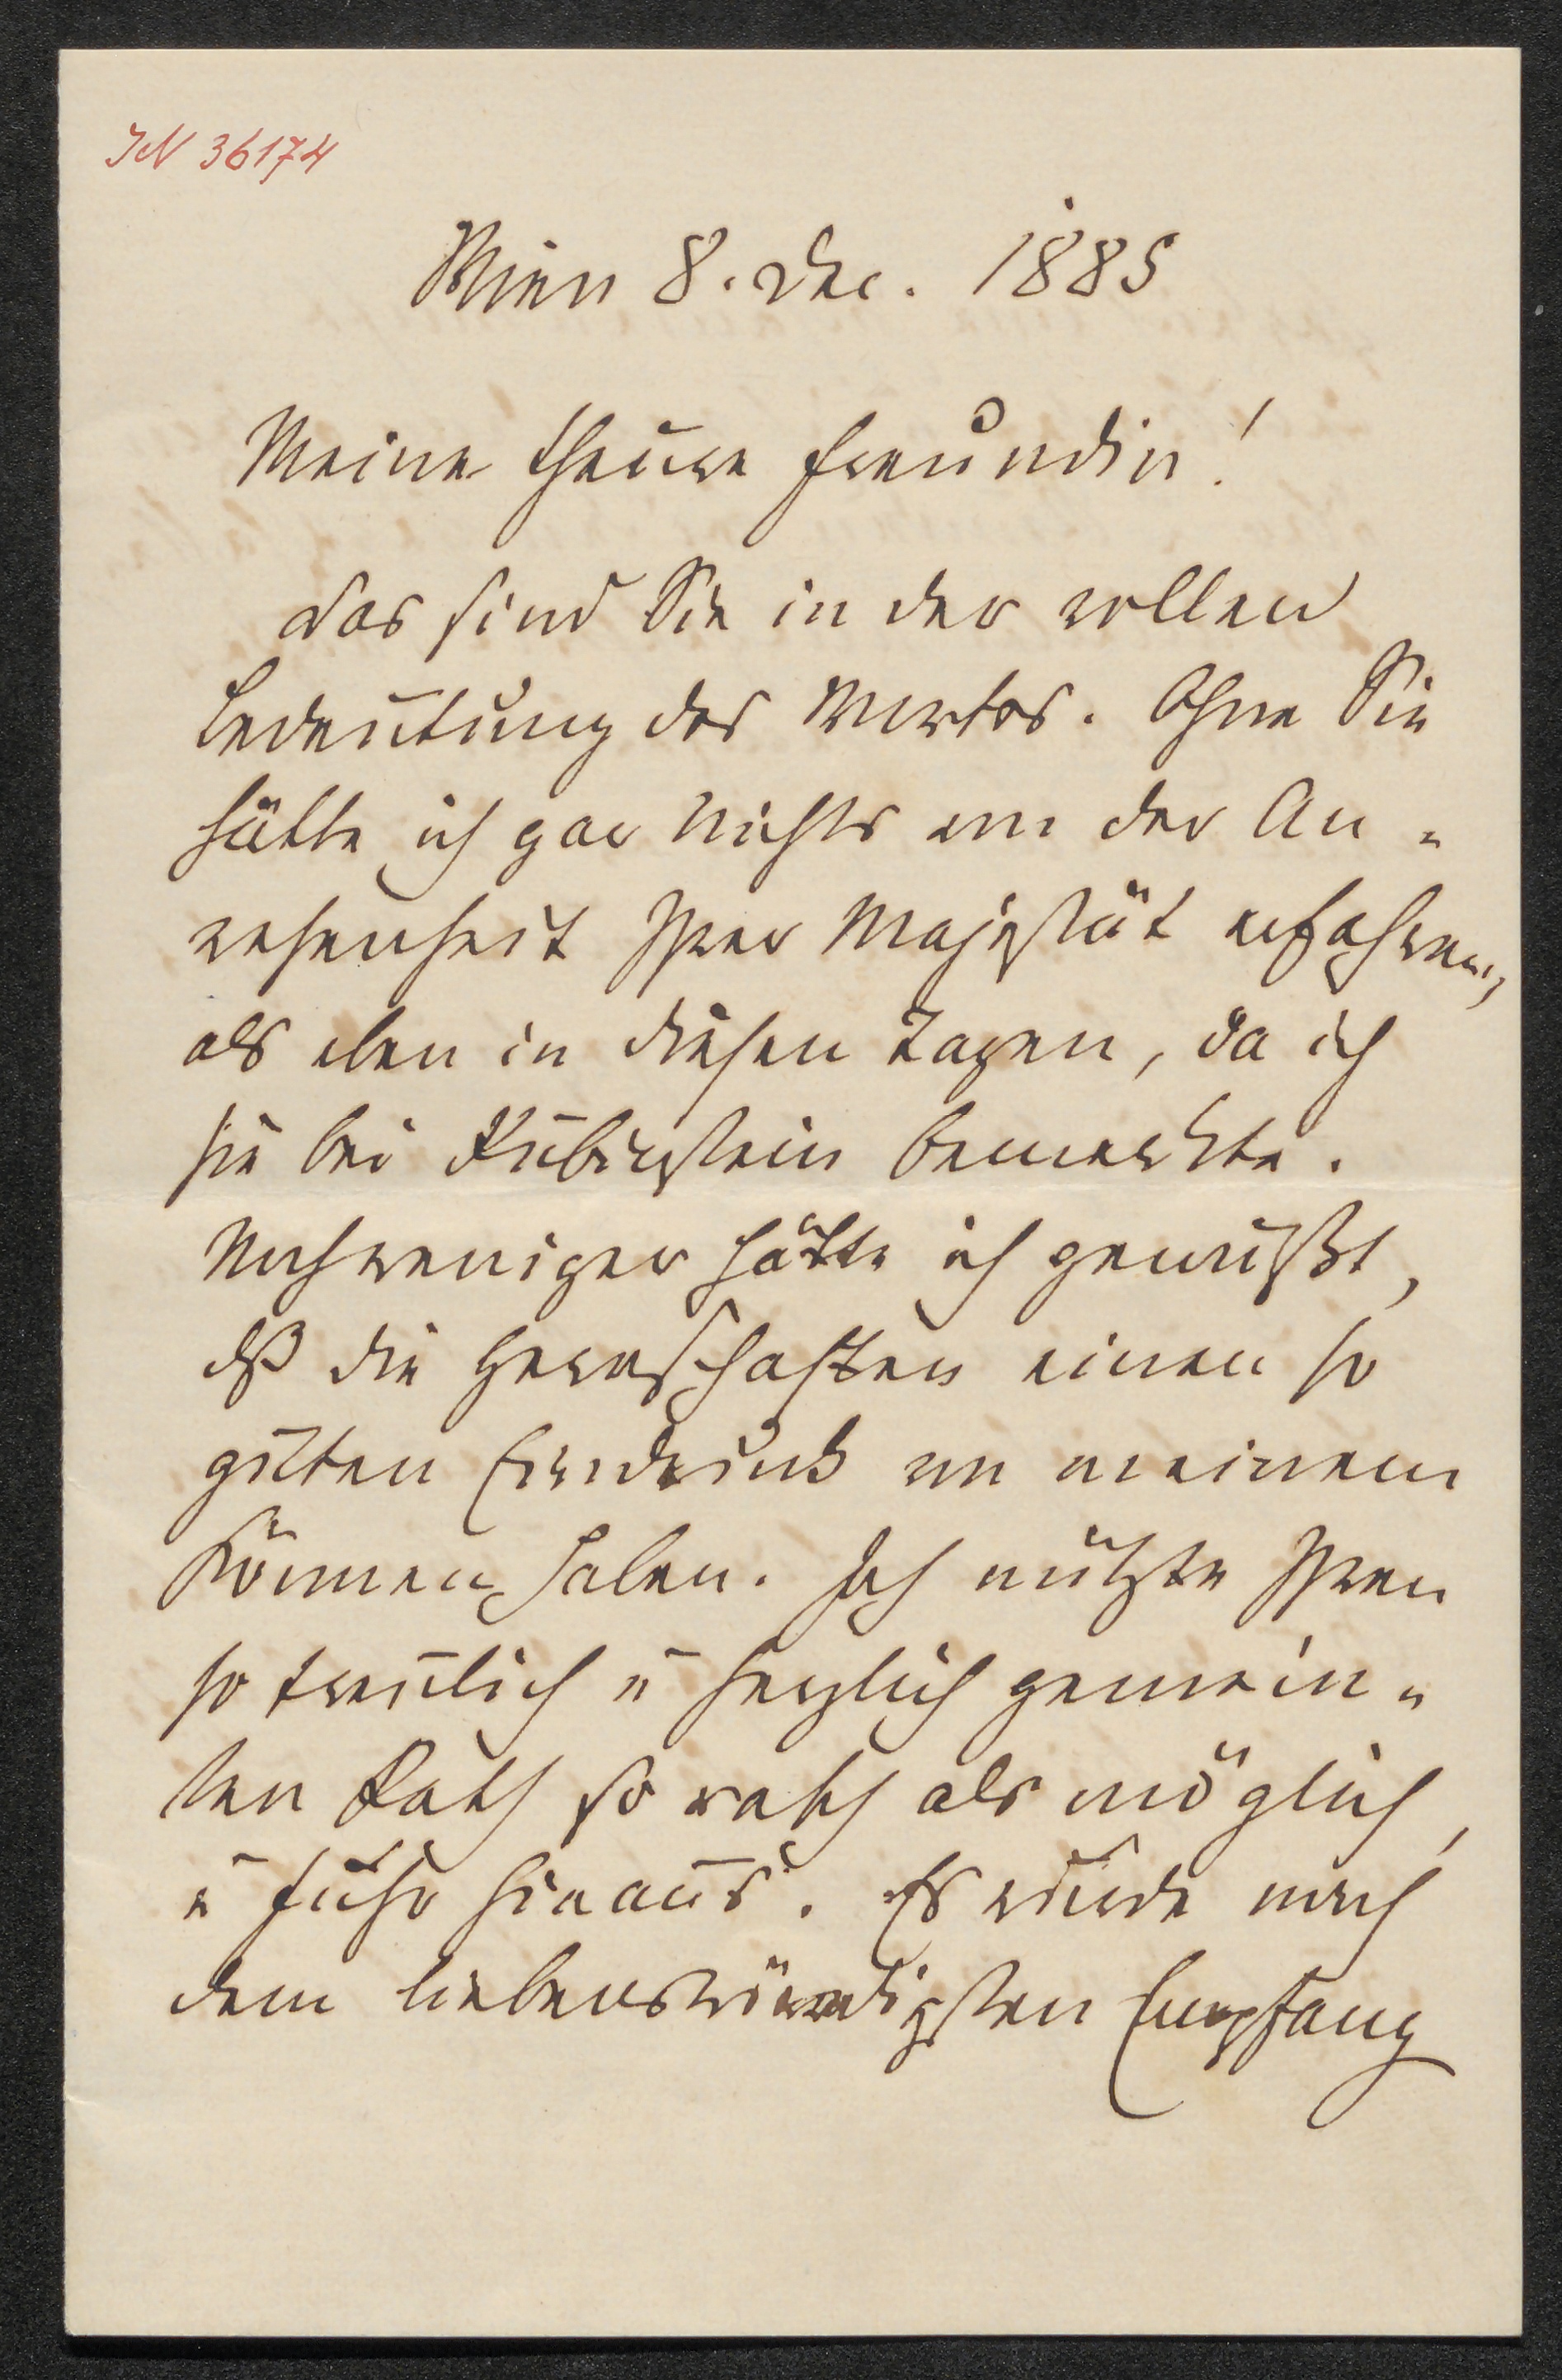 IN 36174
Wien 8. Dec. 1885
Meine theure Freundin!
das sind Sie in der vollen
Bedeutung des Wortes. Ohne Sie
hätte ich gar nichts von der An-
wesenheit Ihrer Majestät erfahren,
als eben in diesen Tagen, da ich
sie bei Rubinstein bemerkte.
Noch weniger hätte ich gewußt,
dß die Herrschaften einen so
guten Eindruck von meinem
Können haben. Ich nützte Ihren
so treulich u herzlich gemein-
ten Rath so rasch als möglich,
u fuhr hinaus. Es wurde nach
dem liebenswürdigsten Empfang